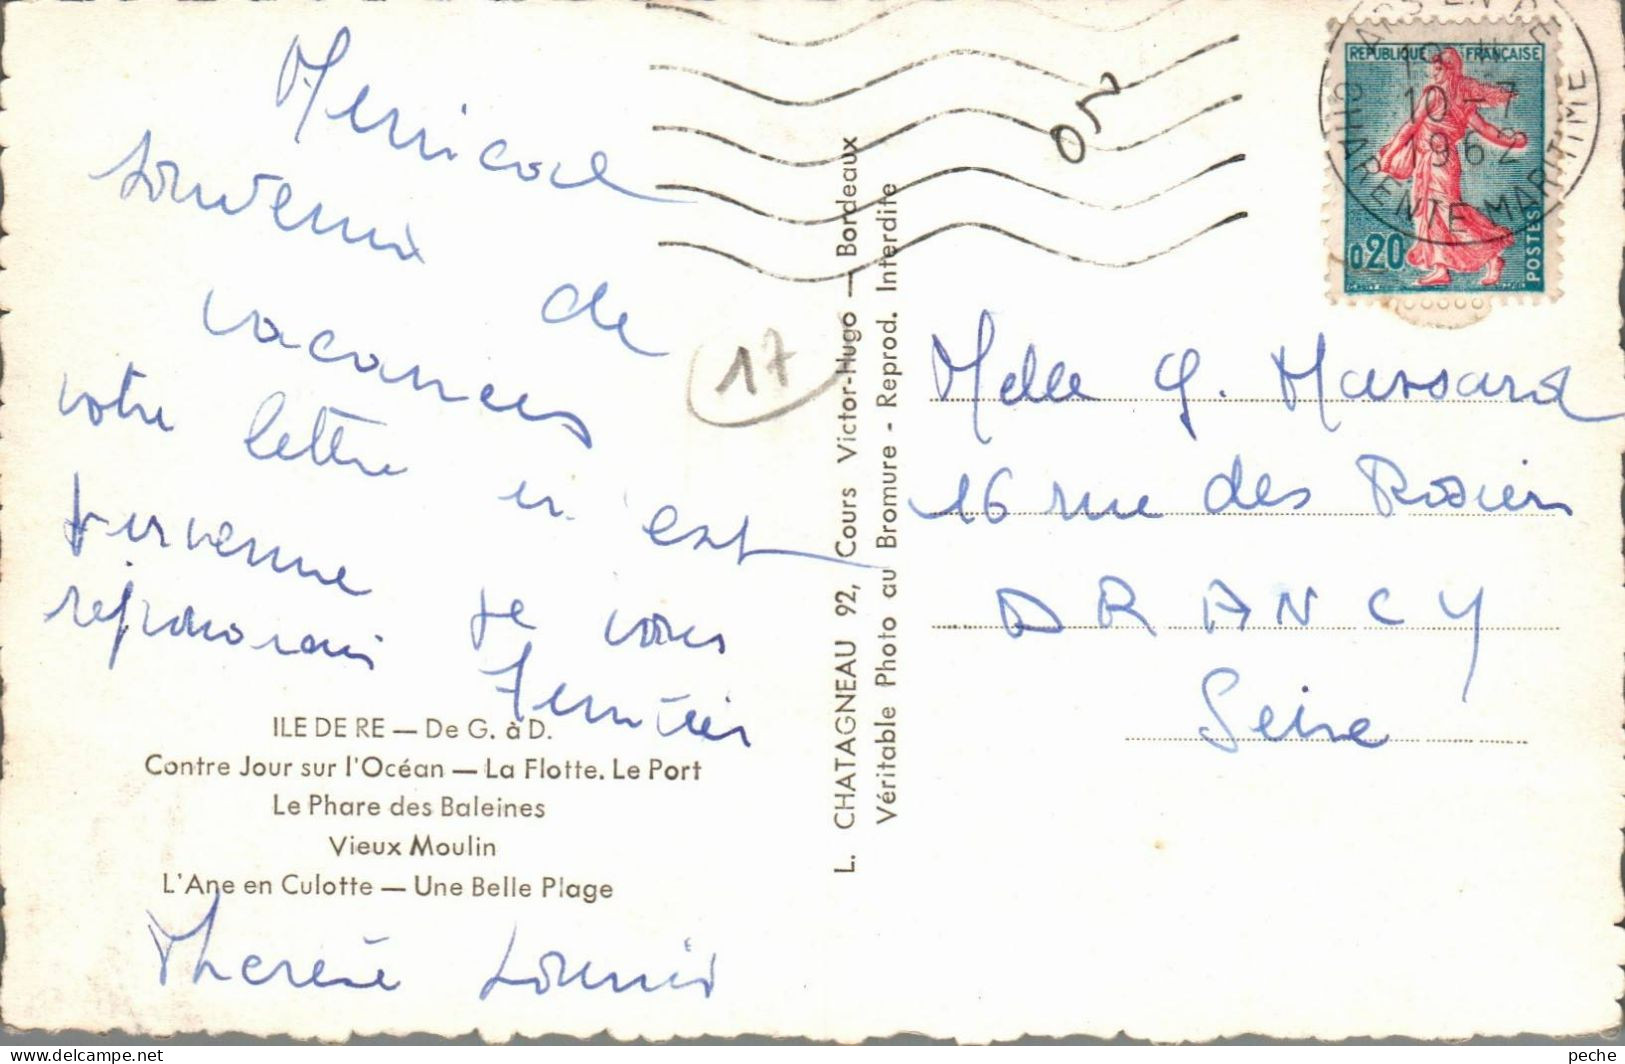 Amical
souvenir
de
vacances
votre lettre m'est
parvenue je vous
répondrai
ILE DE RE — De G. à D.
Contre Jour sur l'Océan — La Flotte. Le Port
Le Phare des Baleines
Vieux Moulin
L'Ane en Culotte — Une Belle Plage
Therèse
17
L. CHATAGNEAU 92, Cours Victor-Hugo — Bordeaux
Véritable Photo au Bromure - Reprod. Interdite
ARS EN RE
10 - 7
1962
CHARENTE MARITIME
REPUBLIQUE FRANÇAISE
0,20
POSTES
Melle G. Massard
16 rue des Rosiers
DRANCY
Seine
peche